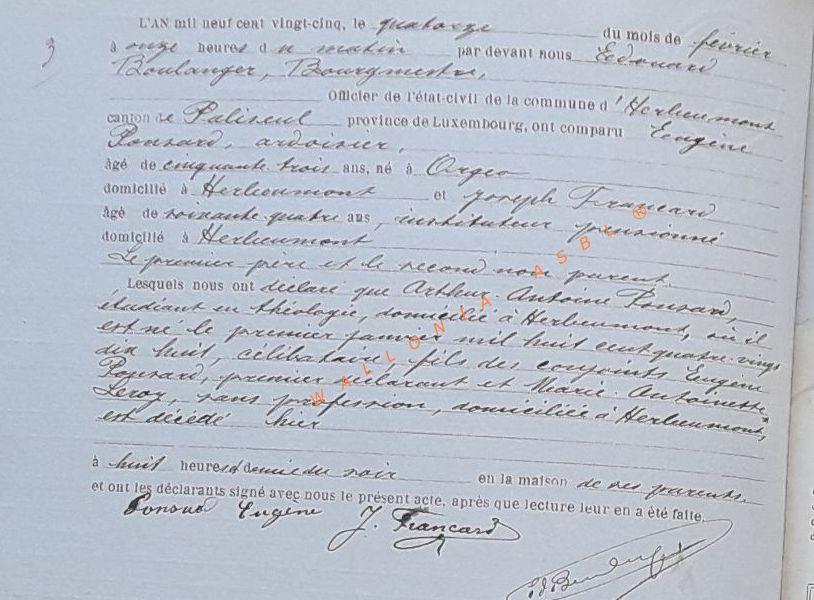 3
L'AN mil neuf cent vingt-cinq, le quatorze du mois de février
à onze heures du matin par devant nous Edouard
Boulanger, Bourgmestre,
Officier de l'état-civil de la commune d'Herbeumont
canton de Paliseul province de Luxembourg, ont comparu Eugène
Ponsard, ardoisier,
âgé de cinquante trois ans, né à Orgeo
domicilié à Herbeumont et Joseph Francard
âgé de soixante quatre ans, instituteur pensionné
domicilié à Herbeumont
Le premier père et le second non parent.
Lesquels nous ont déclaré que Arthur Antoine Ponsard,
étudiant en théologie, domicilié à Herbeumont, où il
est né le premier janvier mil huit cent quatre-vingt
dix huit, célibataire, fils des conjoints Eugène
Ponsard, premier déclarant et Marie-Antoinette
Leroy, sans profession, domiciliée à Herbeumont,
est décédé hier
à huit heures et demie du soir en la maison de ses parents.
et ont les déclarants signé avec nous le présent acte, après que lecture leur en a été faite.
Ponsard Eugène J. Francard
WALLONIA ASBL ®